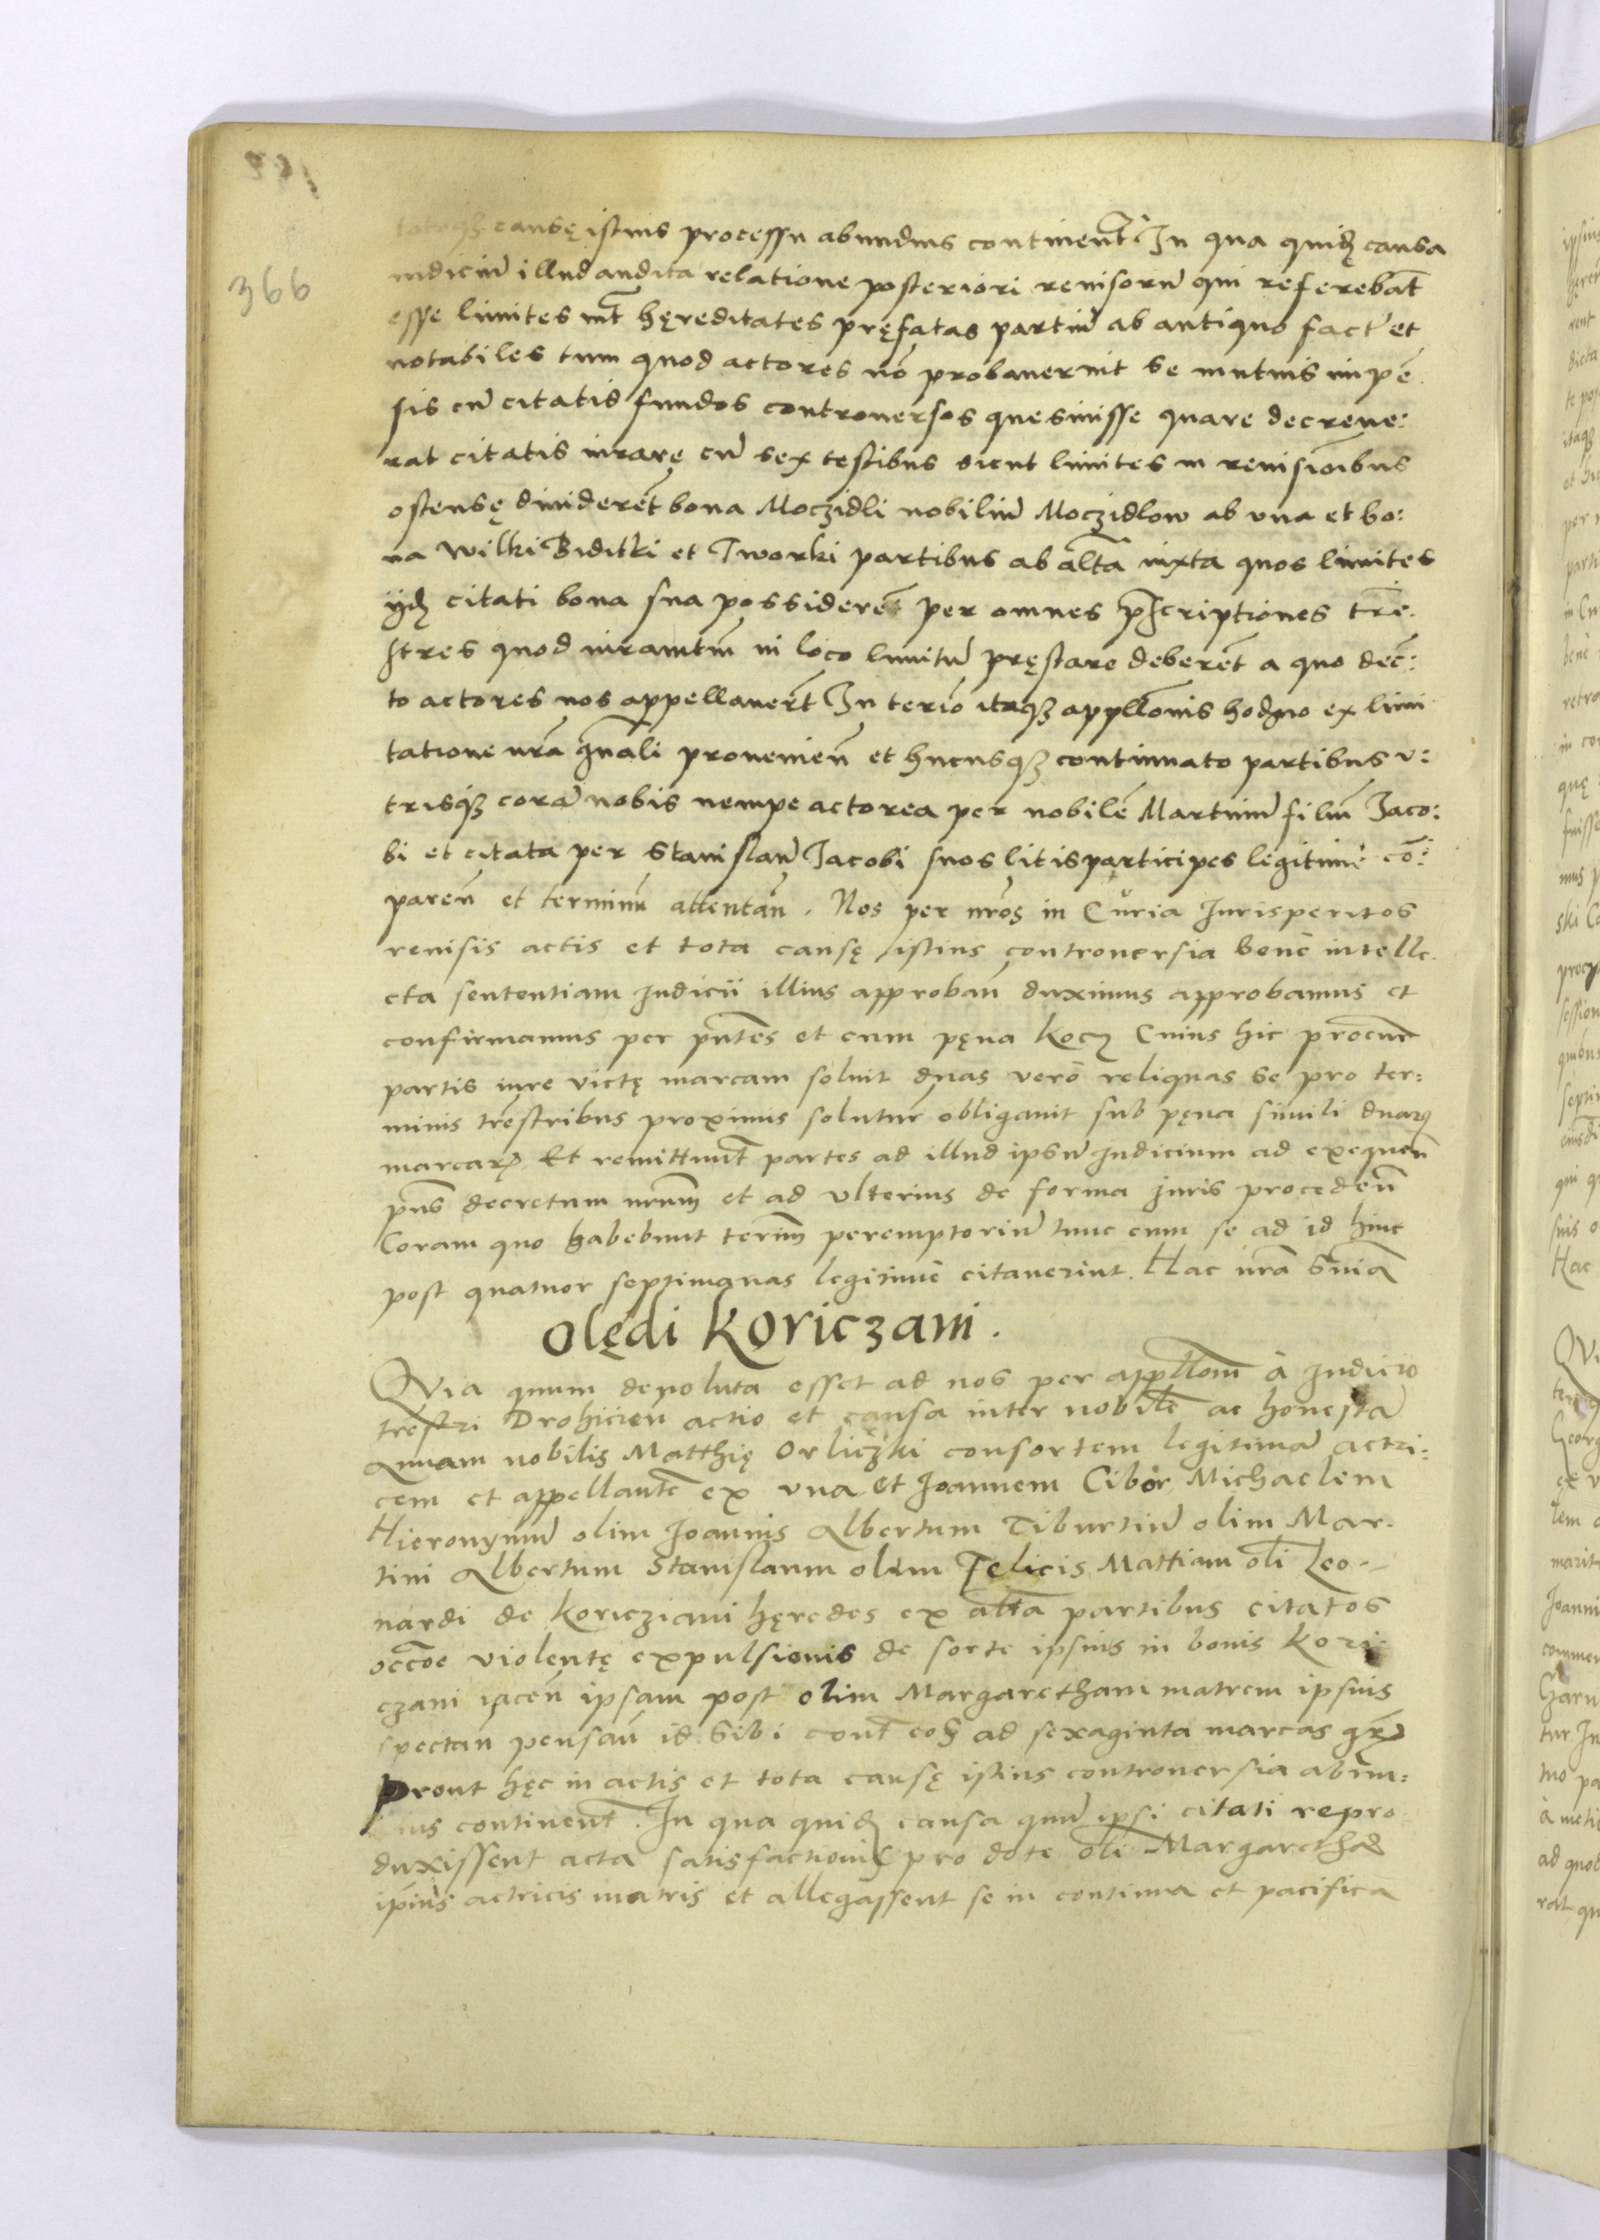 366
totoqȝ causę istius processu abundius continent̃ In qua quidȝ causa
iudiciũ illud audita relatione posteriori reuisorũ qui referebãt
esse limites int̃ hęreditates pręfatas partiũ ab antiquo fact' et
notabiles tum quod actores nõ probauerint se mutuis impẽ
sis cũ citatis fundos controuersos quesiuisse quare decreue:
rat citatis iurarę cũ sex testibus sicut limites in reuisiõibus
ostensę diuiderẽt bona Moczidli nobiliũ Moczidlow ab vna et bo:
na Wilki Biditki et Tworki partibus ab alt̃a iuxta quos limites
ijdȝ citati bona sua possiderẽt per omnes p̃scriptiones tr̃e:
stres quod iuramt̃m in loco limitũ pręstare deberẽt a quo dec̃:
to actores nos appellauer̃t In terĩo itaqȝ appllõnis hodno ex limi
tatione nr̃a gñali prouenieñ et hucusqȝ continuato partibus v:
trisqȝ corã nobis nempe actorea per nobilẽ Martinũ filiũ Jaco:
bi et citata per Stanislaũ Jacobi suos litisparticipes legitimè cõ:
pareñ et terminũ attentañ. Nos per nr̃os in Curia Jurisperitos
reuisis actis et tota causę istius controuersia benè intelle
cta sententiam Judicii illius approbañ duximus approbamus et
confirmamus per p̃ntes et cum pęna kocz Cuius hic procur̃
partis iure victę marcam soluit duas verò reliquas se pro ter:
minis tr̃estribus proximis solutur̃ obligauit sub pęna simili duarȝ
marcarȝ Et remittunt̃ partes ad illud ipsũ Judicium ad exequeñ
p̃ns decretum nr̃um et ad vlterius de forma Juris procedeñ
Coram quo habebunt terĩm peremptoriũ tunc cum se ad id hinc
post quatuor septimanas legitimè citauerint. Hac nr̃a sñia
Olędi Koriczani.
Quia quum deuoluta esset ad nos per appllõm à Judicio
tr̃estri Drohicieñ actio et causa inter nobilẽ ac honestã
Annam nobilis Matthię Orliczki consortem legitimã actri:
cem et appellantẽ ex vna et Joannem Cibor Michaelem
Hieronymũ olim Joannis Albertum Tiburtiũ olim Mar-
tini Albertum Stanislaum olim Felicis Mattiam olĩ Leo-
nardi de Koricziani hęredes ex alt̃a partibus citatos
occõe violentę expulsionis de sorte ipsius in bonis Kori
czani iaceñ ipsam post olim Margaretham matrem ipsius
spectañ pensañ id sibi cont̃ eos ad sexaginta marcas grȝ
Prout hęc in actis et tota causę istius controuersia abun:
ius continent̃. In qua quidȝ causa quũ ipsi citati repro
duxissent acta satisfactionis pro dote olĩ Margarethae
ip̃ius actricis matris et allegassent se in continua et pacifica